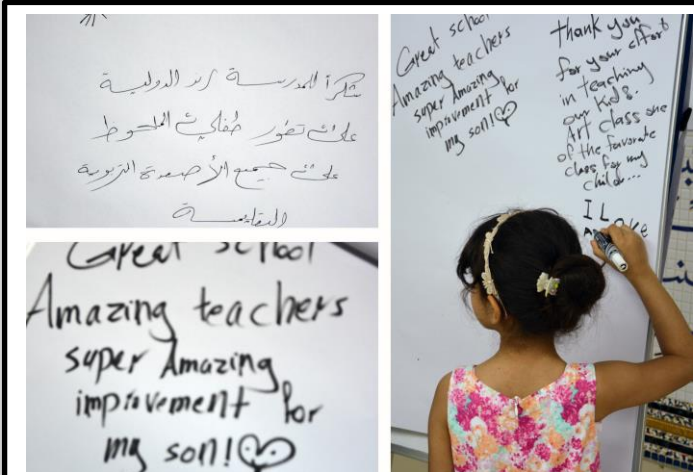 شكراً للمدرسة الدولية
على تطور طفلي الملحوظ
على جميع الأصعدة التربوية
Great school
Amazing teachers
super Amazing
improvement for
my son!
Great school
Amazing teachers
super Amazing
improvement for
my son!
Thank you
for your effort
in teaching
our kids.
Art class one
of the favorate
class for my
child...
I L